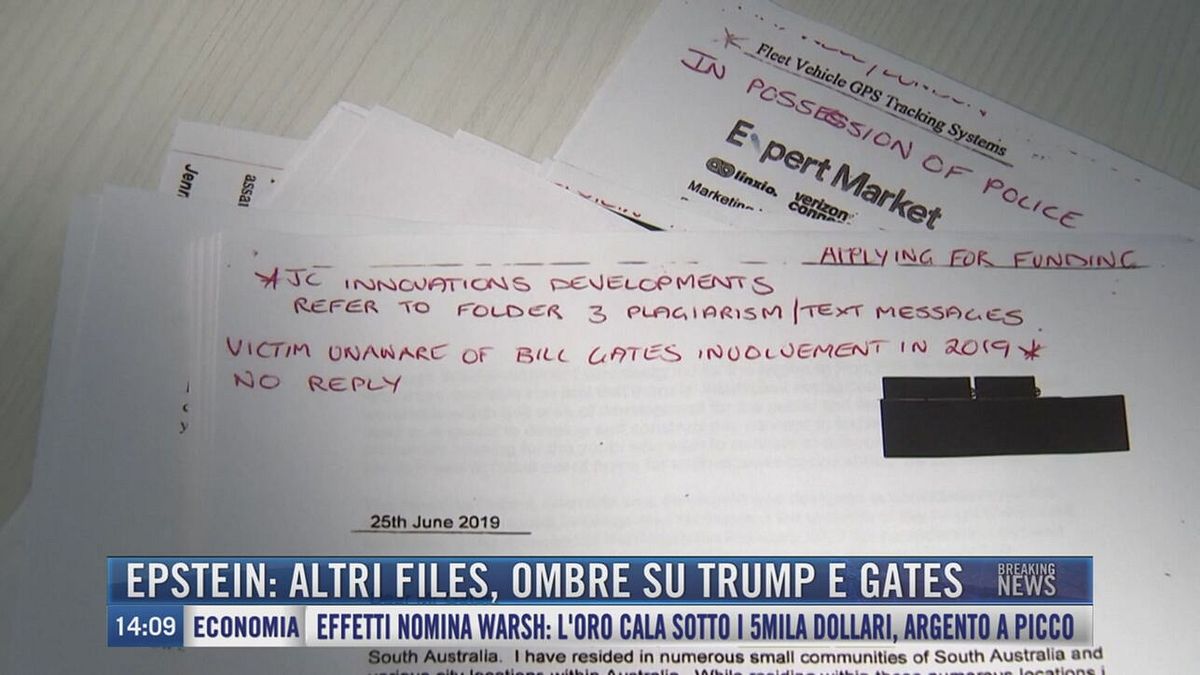 * Fleet Vehicle GPS Tracking Systems
IN POSSESSION OF POLICE
Expert Market
linxio. verizon
Jenn
assa
APPLYING FOR FUNDING
*JC INNOVATIONS DEVELOPMENTS
REFER TO FOLDER 3 PLAGIARISM/TEXT MESSAGES.
VICTIM UNAWARE OF BILL GATES INVOLVEMENT IN 2019 *
NO REPLY
25th June 2019
EPSTEIN: ALTRI FILES, OMBRE SU TRUMP E GATES
BREAKING
NEWS
14:09 ECONOMIA EFFETTI NOMINA WARSH: L'ORO CALA SOTTO I 5MILA DOLLARI, ARGENTO A PICCO
South Australia. I have resided in numerous small communities of South Australia and